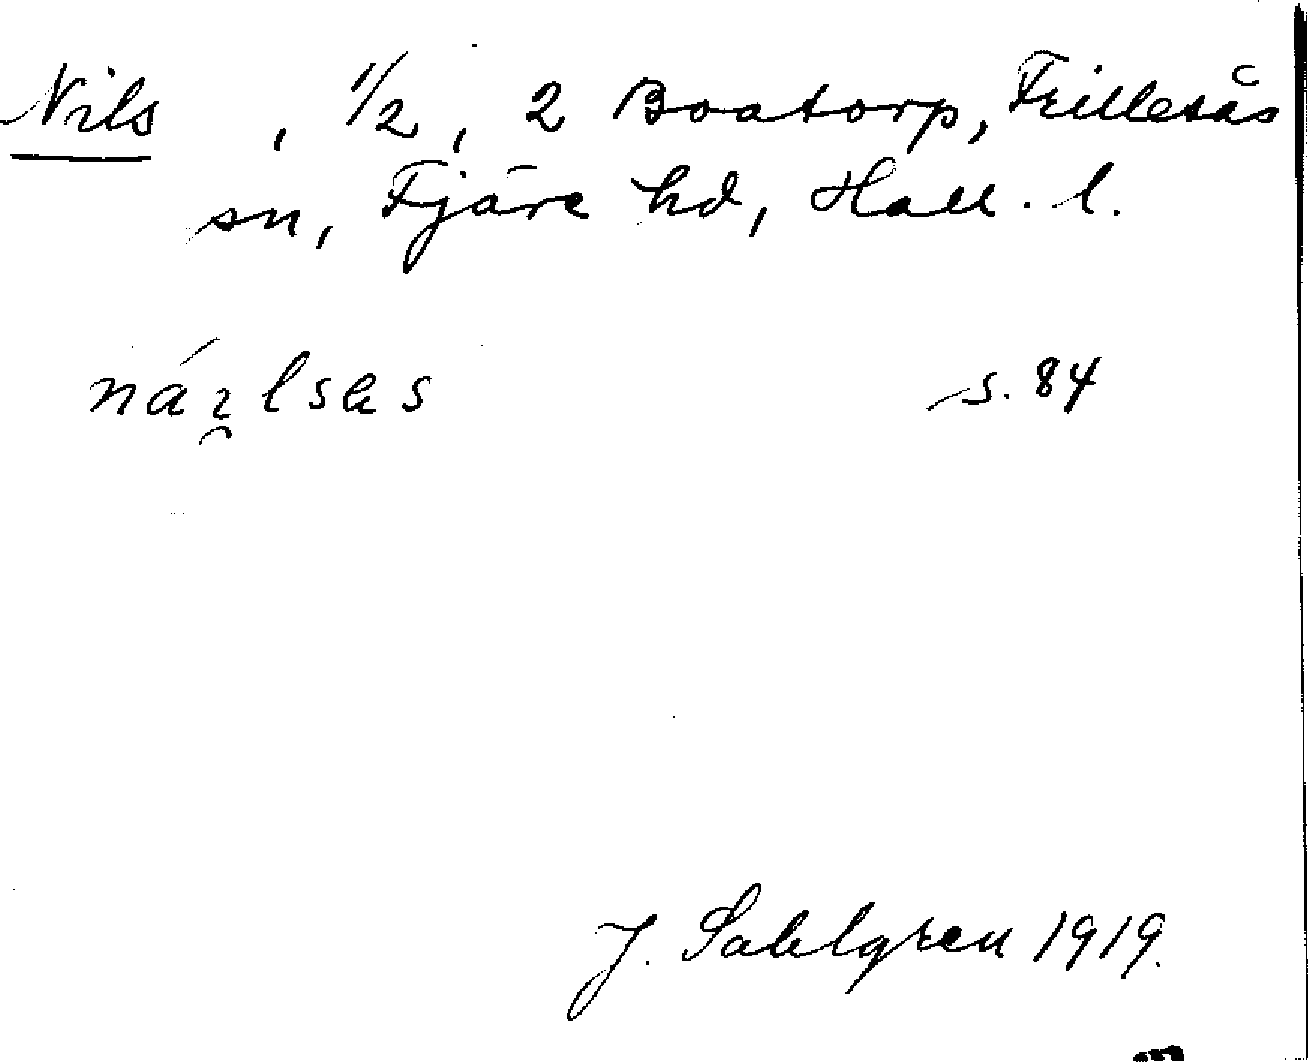 Nils , 1/2, 2 Boatorp, Frillesås
sn, Fjäre hd, Hall. l.
s. 84
J. Sahlgren 1919.